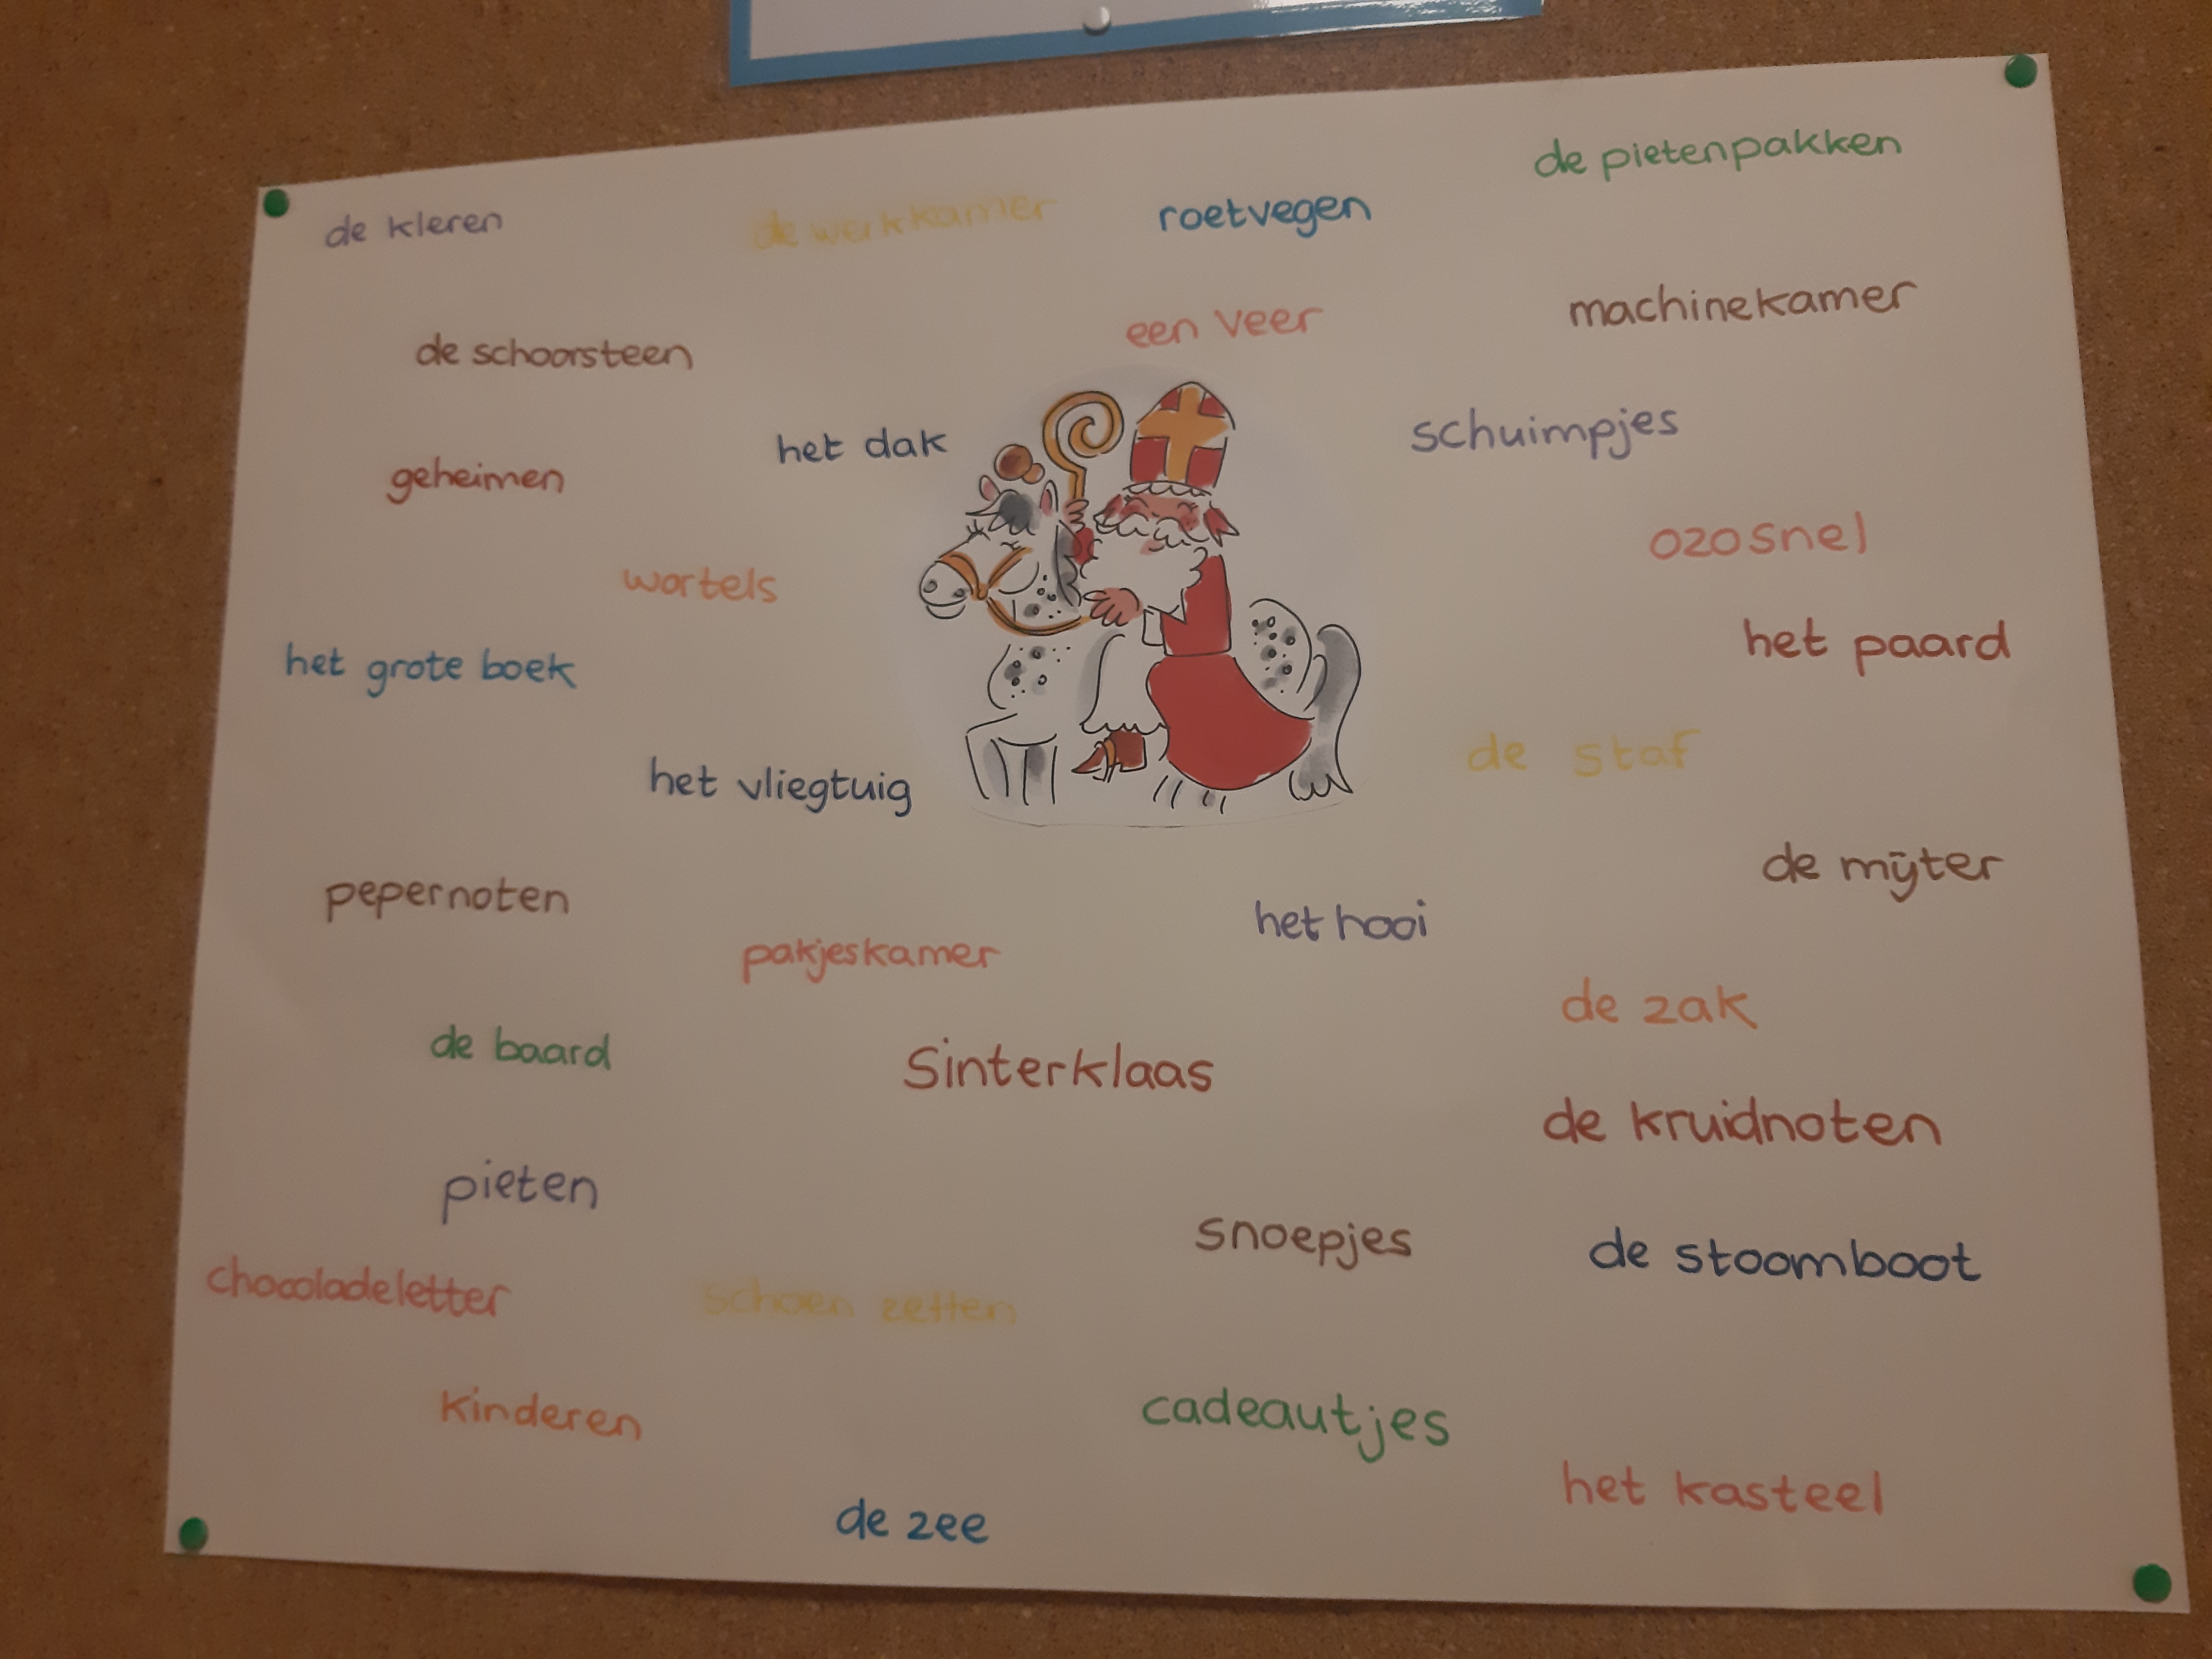 de pietenpakken
de kleren
de werkkamer
roetvegen
machinekamer
een veer
de schoorsteen
schuimpjes
het dak
geheimen
ozosnel
wortels
het paard
het grote boek
de staf
het vliegtuig
de mijter
pepernoten
het hooi
pakjeskamer
de zak
de baard
Sinterklaas
de kruidnoten
pieten
snoepjes
de stoomboot
chocoladeletter
schoen zetten
kinderen
cadeautjes
het kasteel
de zee